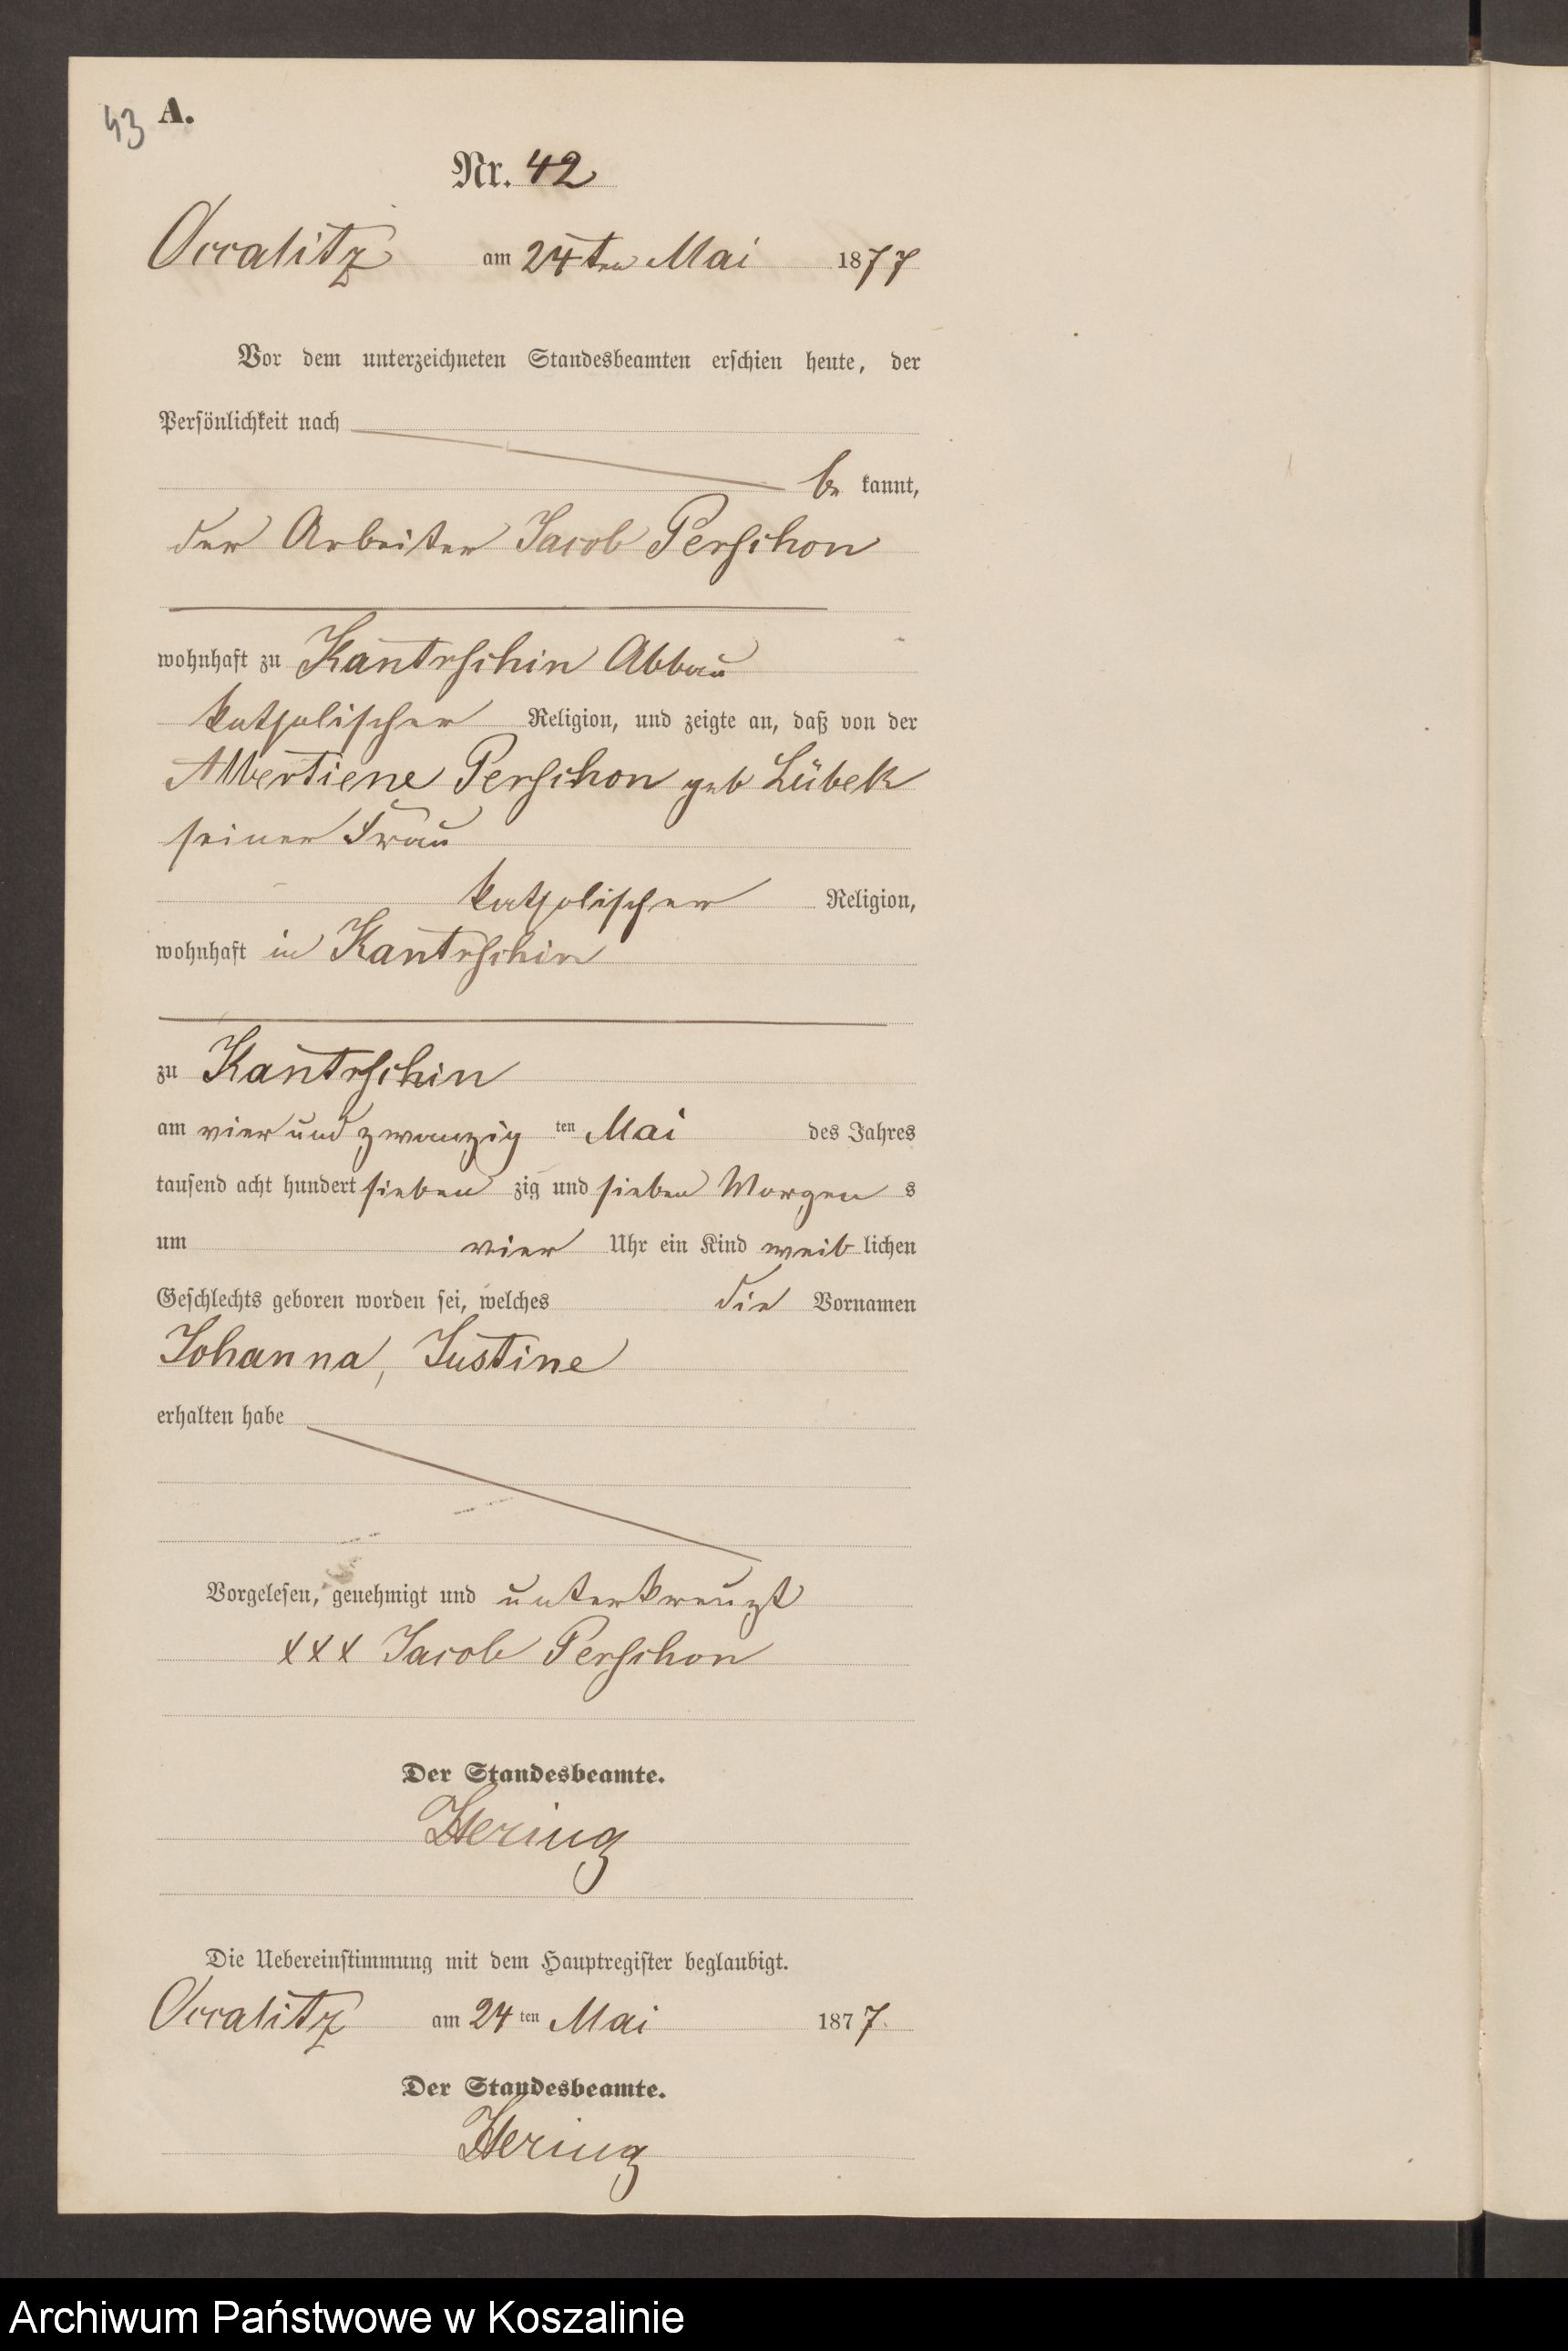 43 A.
Nr. 42
Occalitz am 24ten Mai 1877
Vor dem unterzeichneten Standesbeamten erschien heute, der
Persönlichkeit nach
be kannt,
der Arbeiter Jacob Perschon
wohnhaft zu Kantrschin Abbau
katholischer Religion, und zeigte an, daß von der
Albertiene Perschon geb Lübek
seiner Frau
katholischer Religion,
wohnhaft in Kantrschin
zu Kantrschin
am vier und zwanzig ten Mai des Jahres
tausend acht hundert sieben zig und sieben Morgen s
um vier Uhr ein Kind weib lichen
Geschlechts geboren worden sei, welches die Vornamen
Johanna, Justine
erhalten habe
Vorgelesen, genehmigt und unterkreuzt
XXX Jacob Perschon
Der Standesbeamte.
Hering
Die Uebereinstimmung mit dem Hauptregister beglaubigt.
Occalitz am 24 ten Mai 1877.
Der Standesbeamte.
Hering
Archiwum Państwowe w Koszalinie